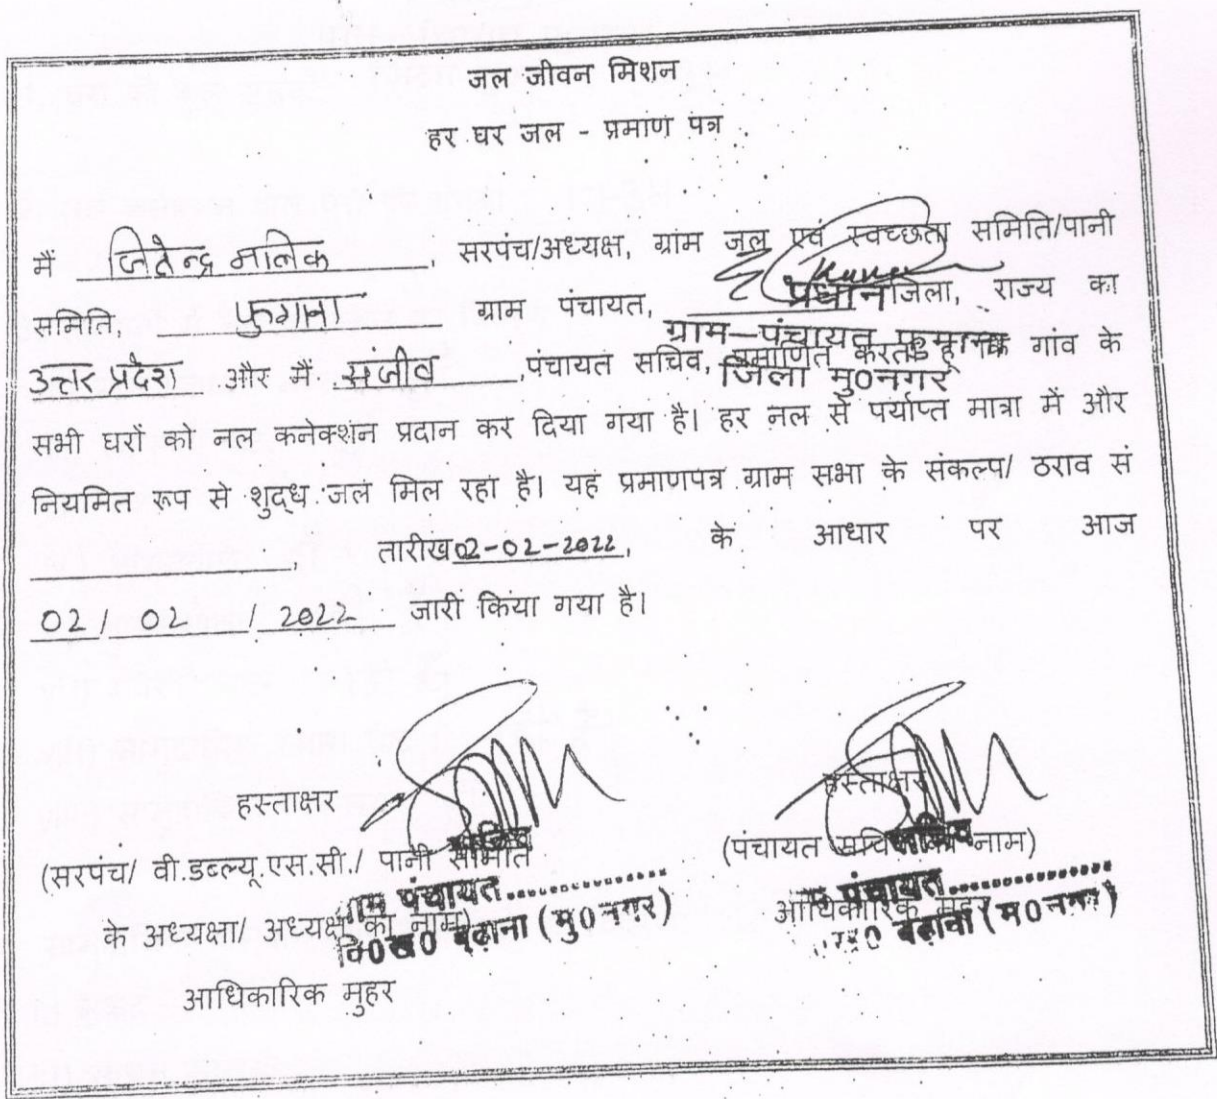 जल जीवन मिशन
हर घर जल - प्रमाण पत्र
मैं जितेन्द्र मलिक, सरपंच/अध्यक्ष, ग्राम जल एवं स्वच्छता समिति/पानी
समिति, फुगाना ग्राम पंचायत, जिला, राज्य का
प्रधान
ग्राम-पंचायत
जिला मु०नगर
उत्तर प्रदेश और मैं संजीव, पंचायत सचिव, प्रमाणित करता गांव के
सभी घरों को नल कनेक्शन प्रदान कर दिया गया है। हर नल से पर्याप्त मात्रा में और
नियमित रूप से शुद्ध जल मिल रहा है। यह प्रमाणपत्र ग्राम सभा के संकल्प/ ठराव सं
, तारीख 02-02-2022, के आधार पर आज
02/ 02 / 2022 जारी किया गया है।
हस्ताक्षर
(सरपंच/ वी.डब्ल्यू.एस.सी./ पानी समिति
के अध्यक्षा/ अध्यक्ष का नाम)
आधिकारिक मुहर
सचिव
ग्राम पंचायत...............
वि०ख० बुढ़ाना (मु०नगर)
हस्ताक्षर
(पंचायत सचिव का नाम)
आधिकारिक मुहर
सचिव
पंचायत...............
बुढ़ाना (मु०नगर)